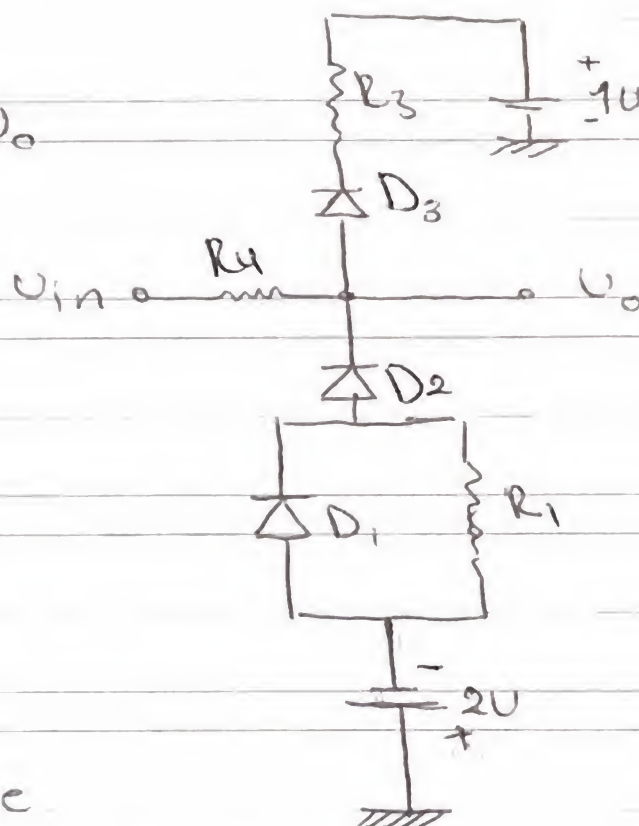 +
R3
1U
-
D3
R4
Uin
Uo
D2
D1
R1
-
2U
+